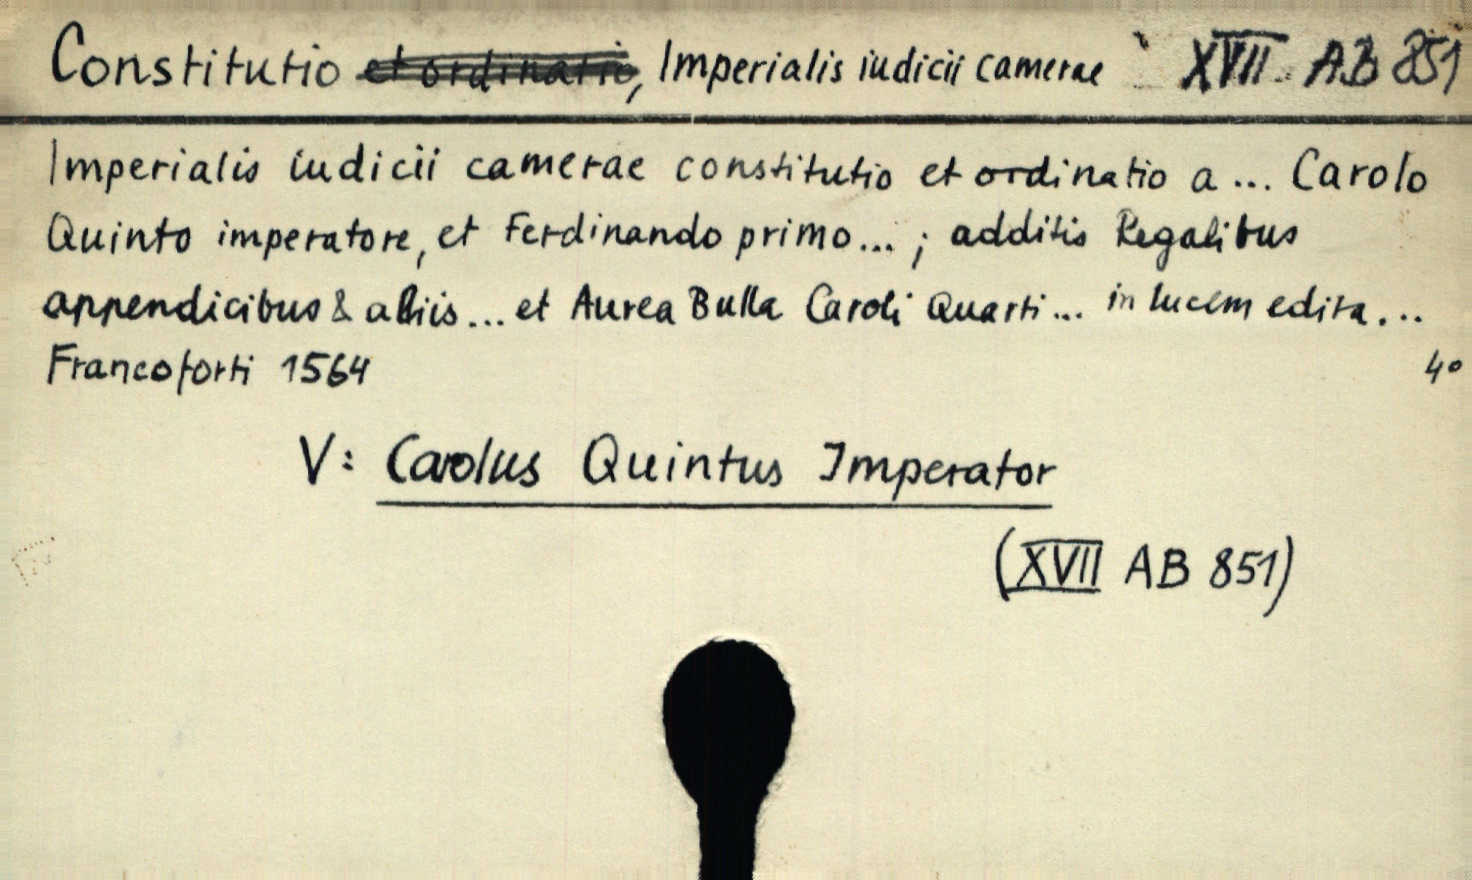 Constitutio et ordinatio, Imperialis iudicii camerae XVII AB 851
Imperialis iudicii camerae constitutio et ordinatio a... Carolo
Quinto imperatore, et Ferdinando primo...; additis Regalibus
appendicibus & aliis... et Aurea Bulla Caroli Quarti... in lucem edita...
Francoforti 1564 4°
V: Carolus Quintus Imperator
(XVII AB 851)